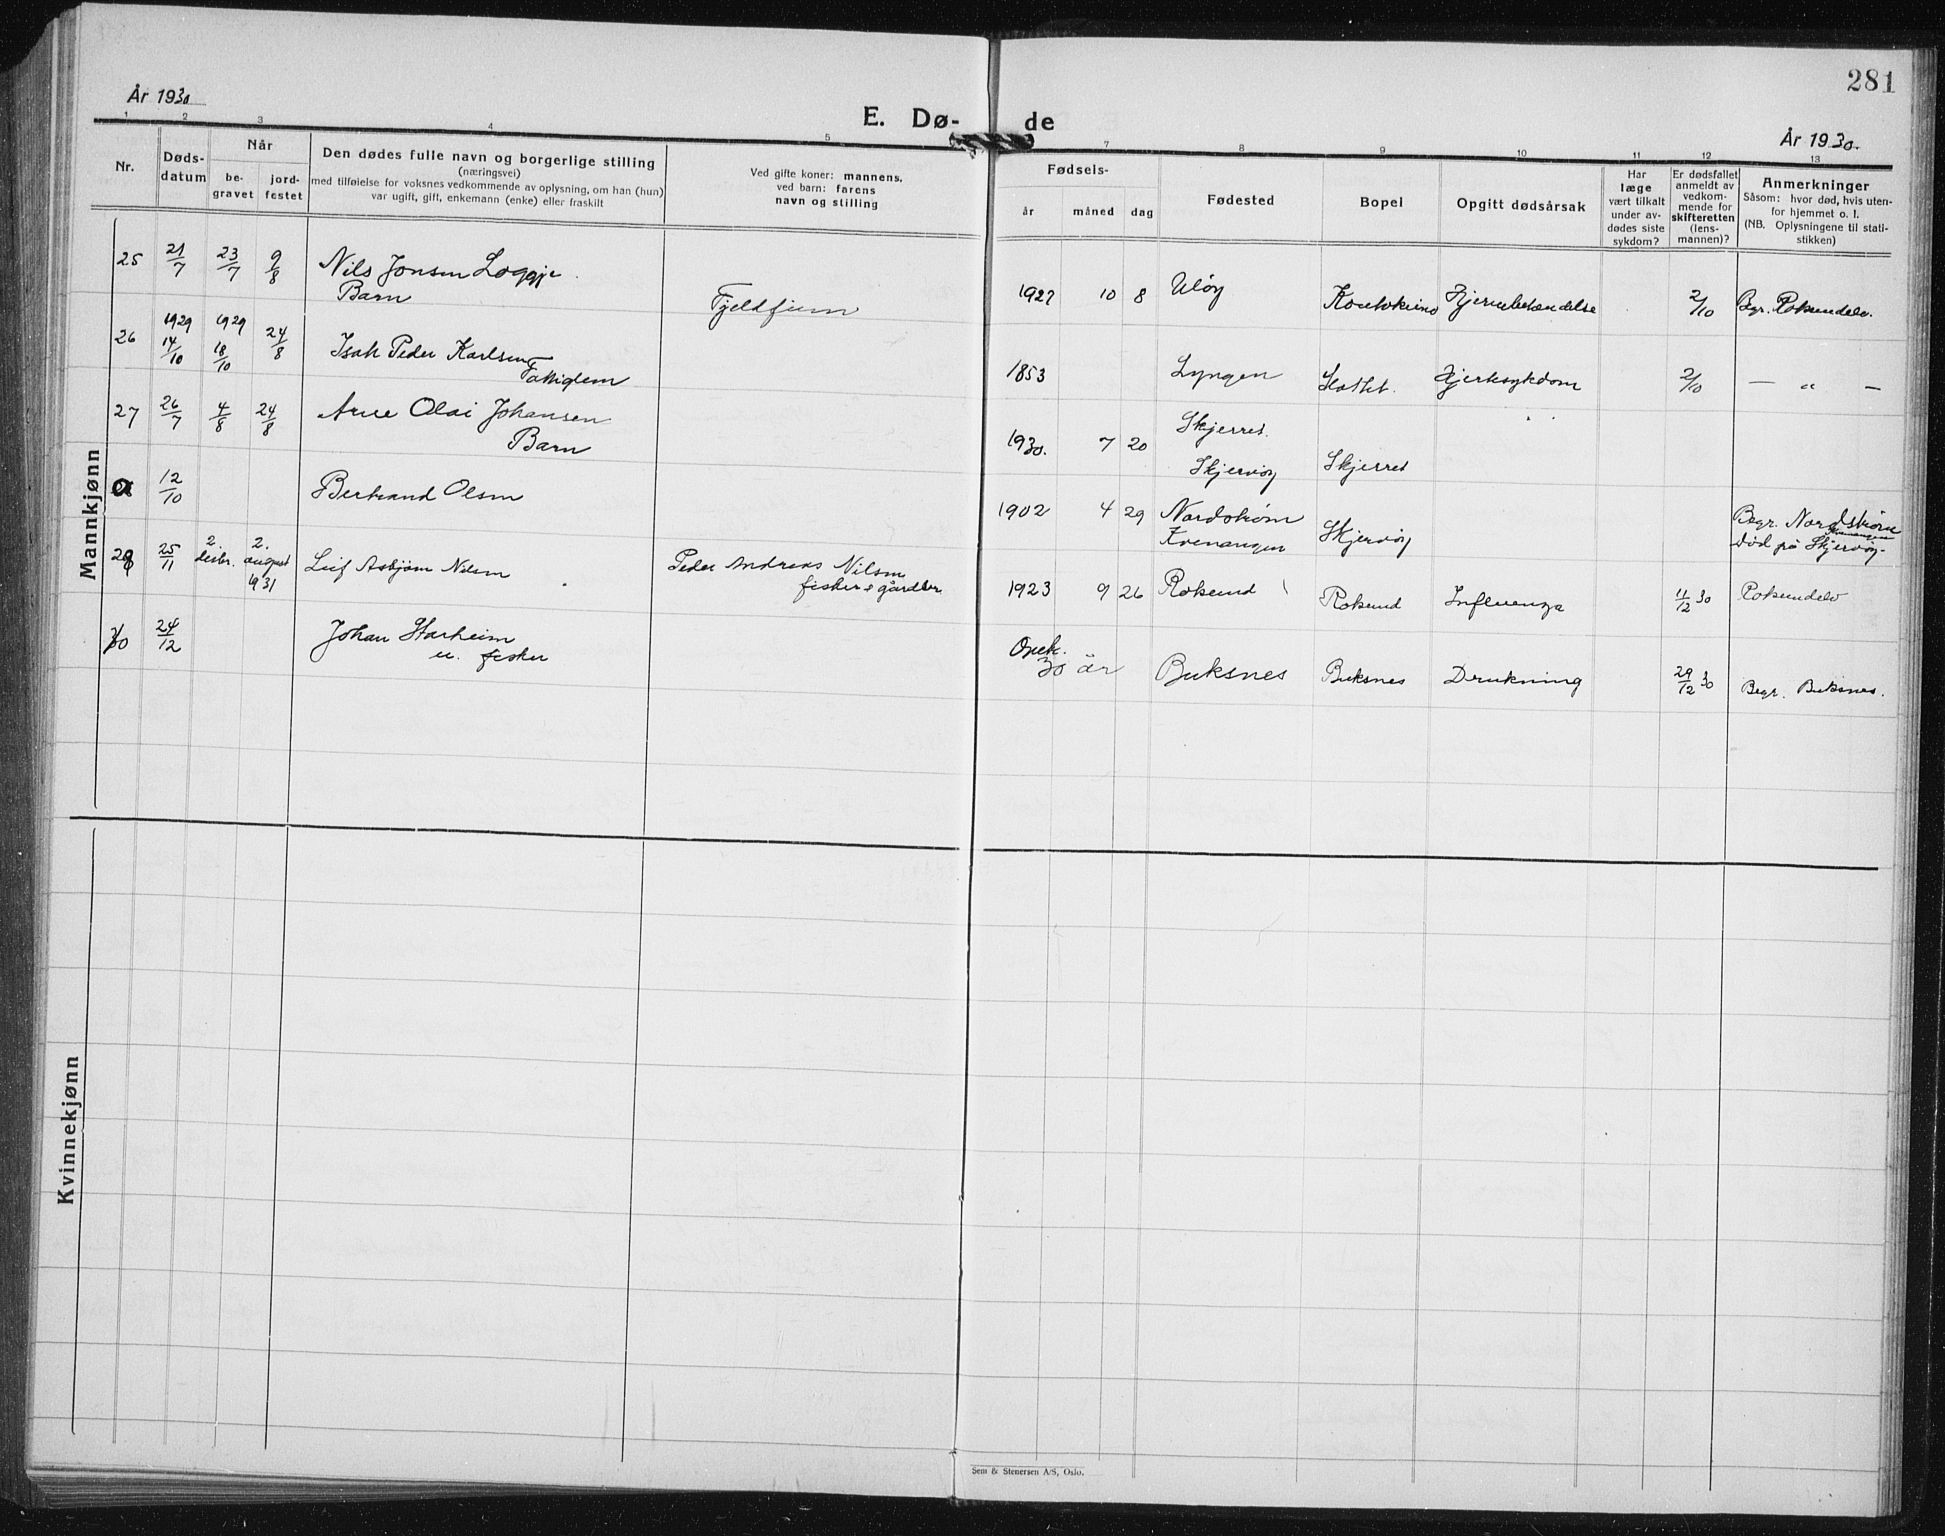 281
År 1930
E. Dø- de
År 1930.
1 2 3 4 5 7 8 9 10 11 12 13
Nr.
Døds-
datum
Når
be-
gravet
jord-
festet
Den dødes fulle navn og borgerlige stilling
(næringsvei)
med tilføielse for voksnes vedkommende av oplysning, om han (hun)
var ugift, gift, enkemann (enke) eller fraskilt
Ved gifte koner: mannens,
ved barn: farens
navn og stilling
Fødsels-
år måned dag
Fødested
Bopel
Opgitt dødsårsak
Har
læge
vært tilkalt
under av-
dødes siste
sykdom?
Er dødsfallet
anmeldt av
vedkom-
mende for
skifteretten
(lens-
mannen)?
Anmerkninger
Såsom: hvor død, hvis uten-
for hjemmet o. l.
(NB. Oplysningene til stati-
stikken)
Mannkjønn
25 21/7 23/7 9/8 Nils Jonsen Loggje
Barn
Fjeldfinn 1927 10 8 Uløy Koutokeino Hjernebetændelse 2/10 Bgr. Rotsundelv.
26 1929 14/10 1929 18/10 24/8 Isak Peder Karlsen
Fattiglem
1853 Lyngen Hjertesykdom 2/10 — " —
27 26/7 4/8 24/8 Arne Olai Johansen
Barn
1930. 7 20 Skjerret.
Skjervøy Skjerret
a 12/10 Bertrand Olsen
1902 4 29 Nordstrøm
Kvenangen Skjervøy Begr. Nordstrøm
Kvenangen
død på Skjervøy.
29 25/11 2. desbr. 2. august 1931 Leif Asbjørn Nilsen Peder Andreas Nilsen
fisker & gårdbr.
1923 9 26 Rotsund Rotsund Influenza 11/12 30 Rotsundelv
30 24/12 Johan Starheim
u. fisker
Opek.
30 år Buksnes Buksnes Drukning 29/12 30 Begr. Buksnes.
Kvinnekjønn
Sem & Stenersen A/S, Oslo.